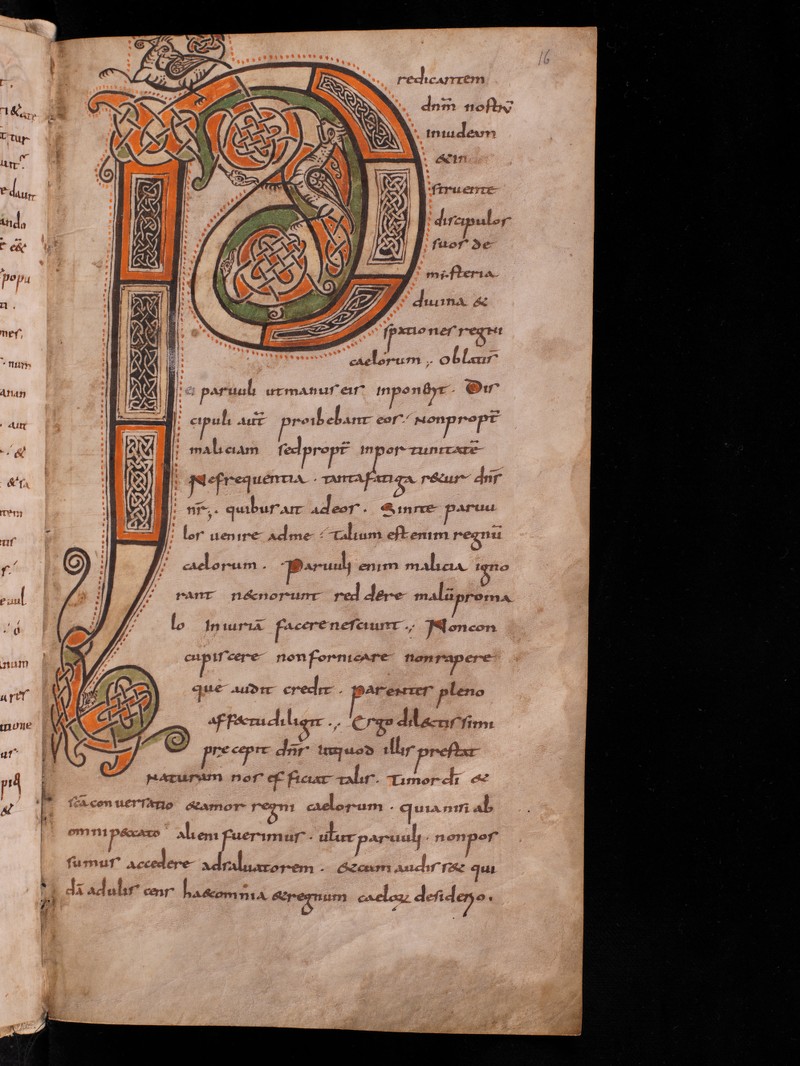 16
P redicantem
dnm̄ nostrū
iniudean
& in
struente
discipulos
suos de
misteria
diuina &
sp&tiones regni
caelorum ; oblatis
paruuli ut manus eis inponer&. Dis
cipuli aūt proibebant eos; Non propt̄
maliciam sed propt̄ inportunitatē
Ne frequentia . tanta fatiga r&ur dn̄s
nr̄; quibus ait ad eos. Sinite paruu
los uenire ad me; talium est enim regnū
caelorum. Paruuli enim malicia igno
rant nec norunt reddere malū pro ma
lo Iniuriā facere nesciunt; Non con
cupiscere non fornicare non rapere
que audit credit. parentes pleno
affectu diligit; Ergo dilectissimi
precepit dn̄s ut quod illis prestat
Naturam nos efficiat talis. Timor dī &
scā conuersatio & amor regni caelorum. quia nisi ab
omni peccato alieni fuerimus. ut paruuli. non pos
sumus accedere ad saluatorem. &cum audis se& qui
dā adulis cens haec omīa & regnum caeloꝝ desiderio.